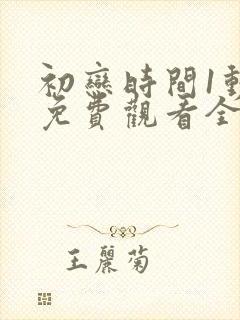 初戀時間1動
免費觀看全
王麗菊